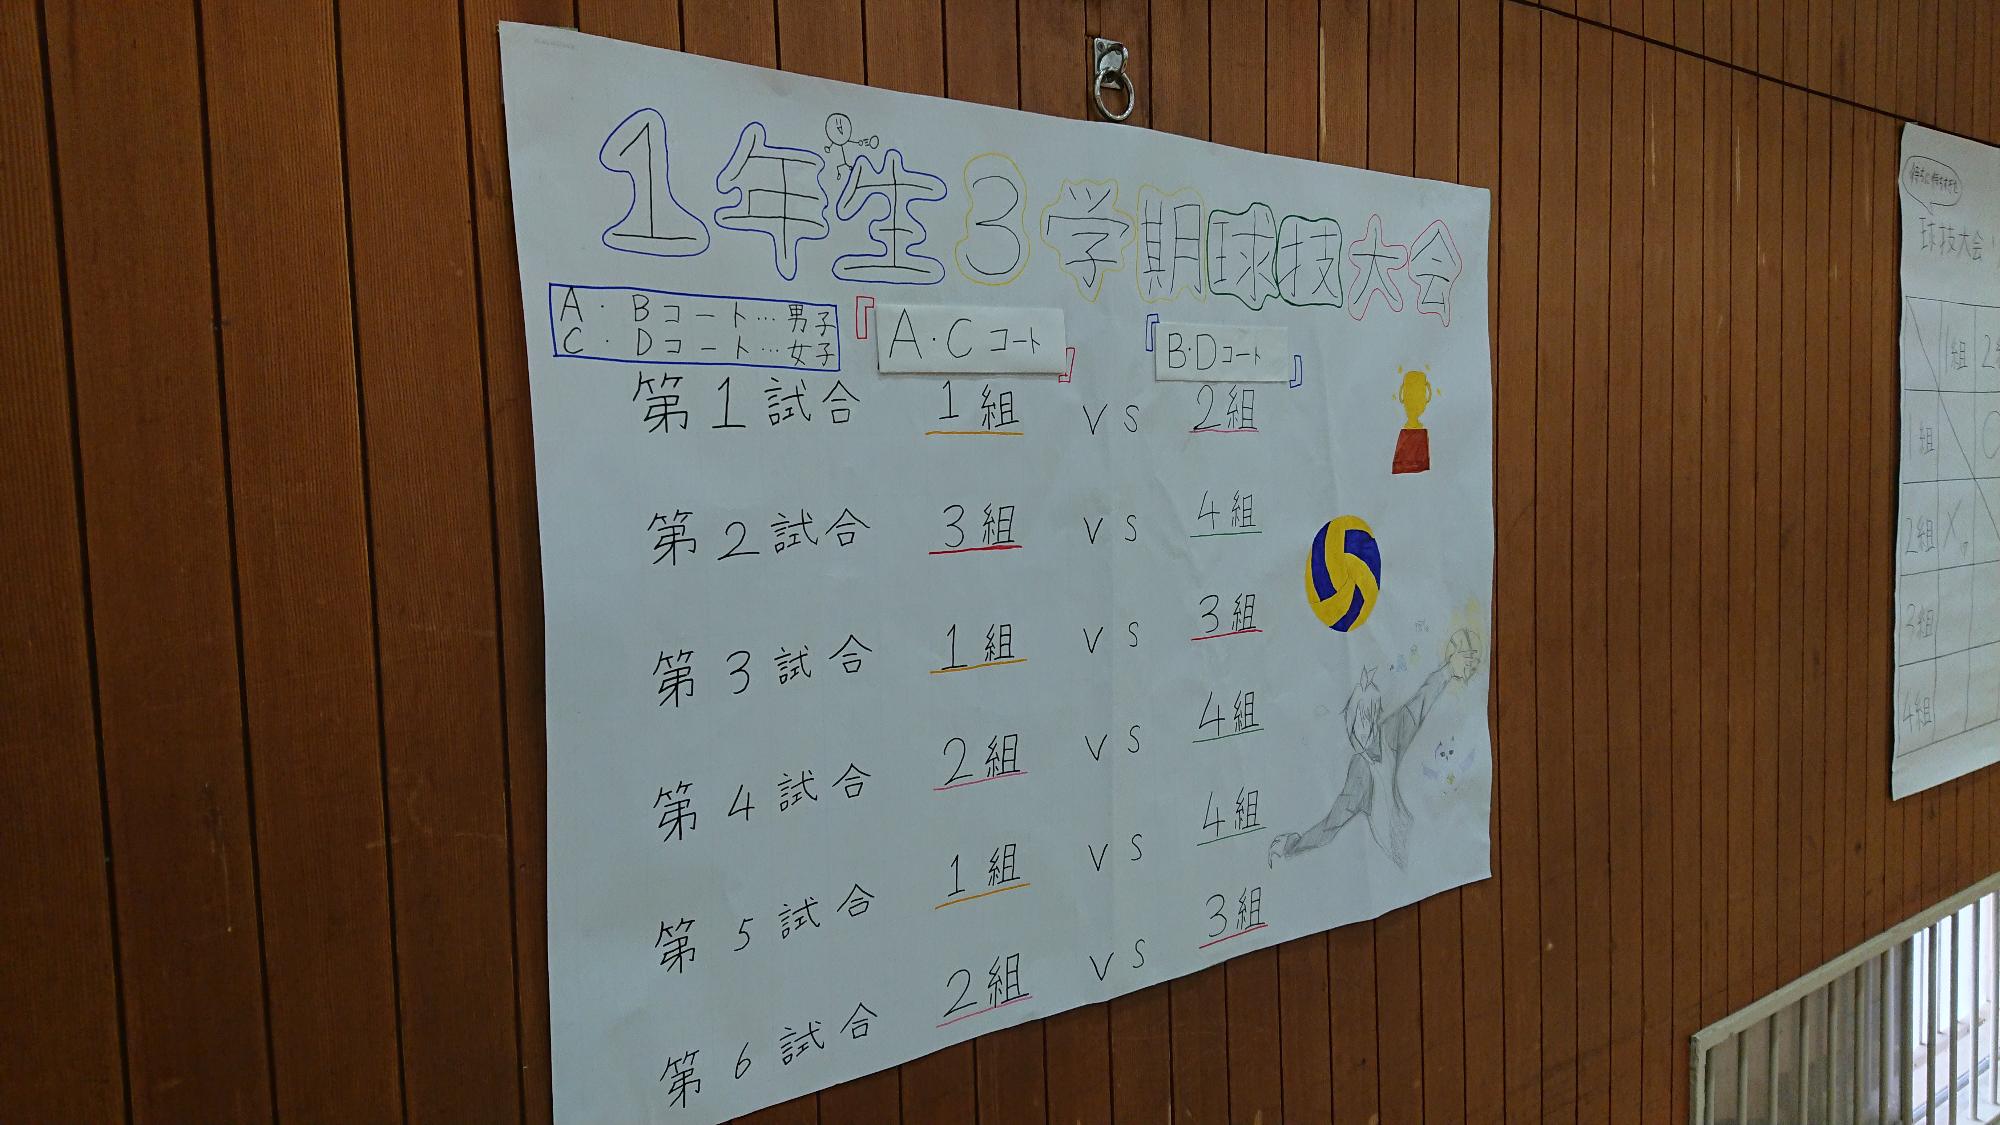 1年生3学期球技大会
A・Bコート…男子
C・Dコート…女子
『A・Cコート』
『B・Dコート』
第1試合 1組 VS 2組
第2試合 3組 VS 4組
第3試合 1組 VS 3組
第4試合 2組 VS 4組
第5試合 1組 VS 4組
第6試合 2組 VS 3組
球技大会
1組 2
1組 ○
2組 ×
3組
4組